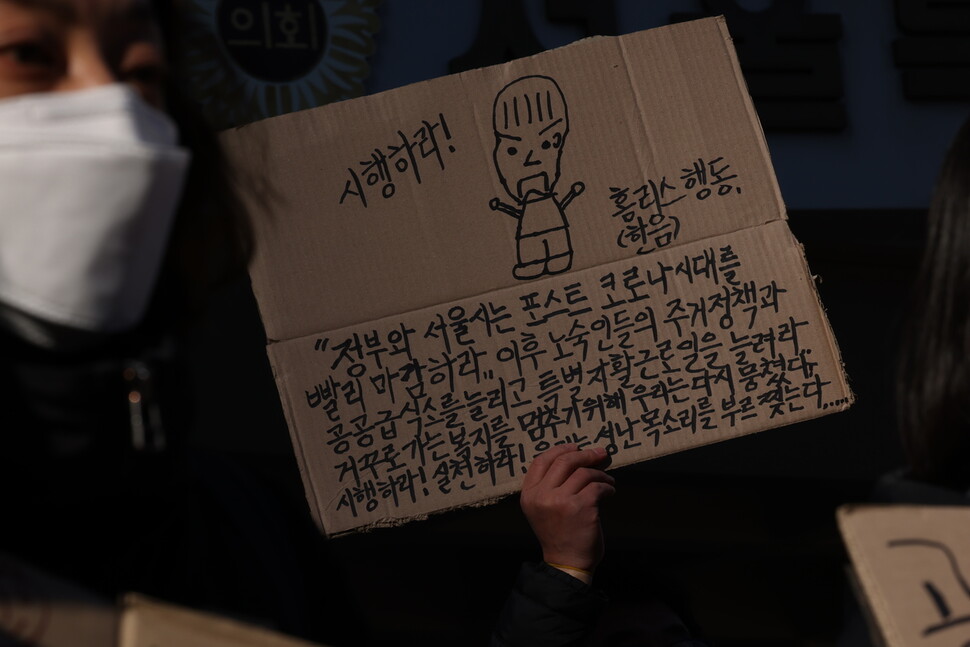 의회
서울
시행하라!
홈리스행동,
(한음)
"정부와 서울시는 포스트 코로나시대를
빨리 마감하라,, 이후 노숙인들의 주거정책과
공공급식소를 늘리고 특별자활근로일을 늘려라
거꾸로 가는 복지를 멈추기 위해 우리는 다시 뭉쳤다,,
시행하라! 실천하라! 성난 목소리를 부르짖는다....